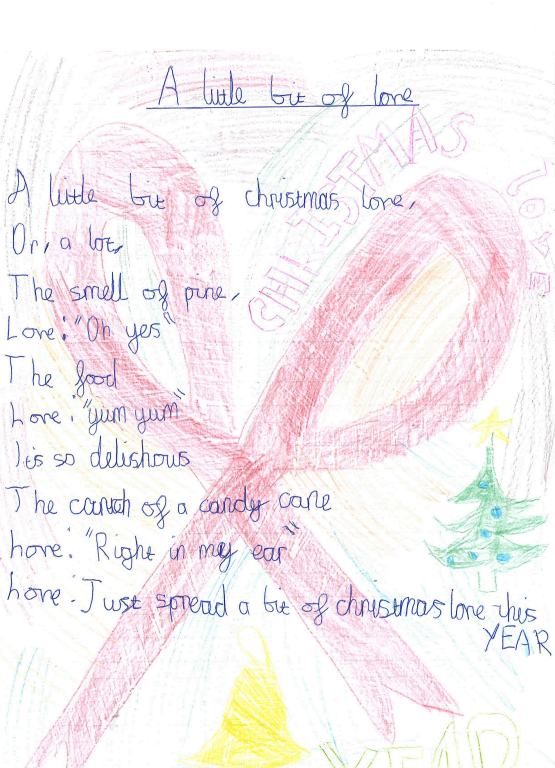 A little bit of love
CHRISTMAS
LOVE
A little bit of christmas love,
Or, a lot,
The smell of pine,
Love: "Oh yes"
The food
Love: "yum yum"
Its so delishous
The of a candy cane
Love: "Right in my ear"
Love: Just spread a bit of christmas love this
YEAR
YEAR